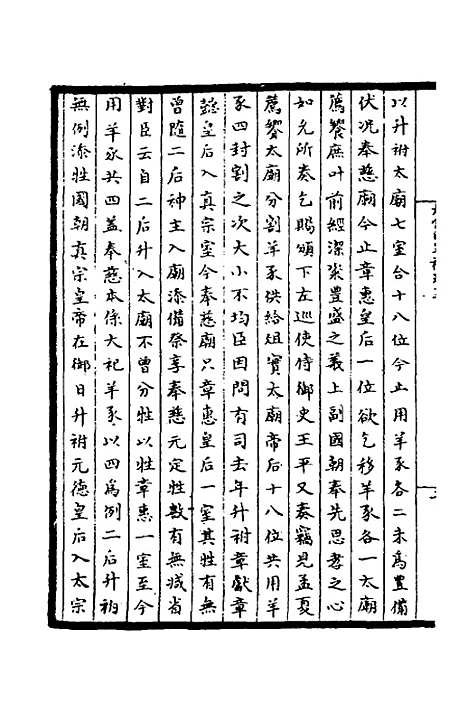 以升祔太廟七室台十八位今止用羊豕各二未為豊備
伏况奉慈廟今止章惠皇后一位欲乞移羊豕各一太廟
薦饗庶叶前經潔粢豊盛之義上副國朝奉先思孝之心
如允所奏乞賜頒下左巡使侍御史王平又奏竊見孟夏
薦饗太廟分割羊豕供給俎實太廟帝后十八位共用羊
豕四封割之次大小不均臣因問有司去年升祔章獻章
懿皇后入真宗室今奉慈廟只章惠皇后一室其牲有無
曾隨二后神主入廟添備祭享奉慈元定牲數有無减省
對臣云自二后升入太廟不曾分牲以牲章惠一室至今
用羊豕共四盖奉慈本條大祀羊豕以四為例二后升祔
無例添牲國朝真宗皇帝在御日升祔元德皇后入太宗